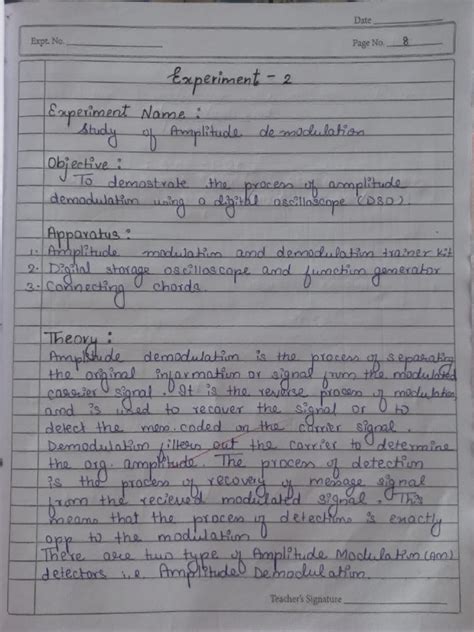 Date
Expt. No.
Page No. 8
Experiment - 2
Experiment Name :
Study of Amplitude demodulation
Objective :
To demostrate the process of amplitude
demodulation using a digital oscilloscope (DSO).
Apparatus :
1. Amplitude modulation and demodulation trainer kit
2. Digital storage oscilloscope and function generator
3. Connecting chords.
Theory :
Amplitude demodulation is the process of separating
the orginal information or signal from the modulated
carrier signal. It is the reverse process of modulation
and is used to recover the signal or to
detect the mess. coded on the carrier signal.
Demodulation filters out the carrier to determine
the org. amplitude. The process of detection
is the process of recovery of message signal
from the recieved modulated signal. This
means that the process of detections is exactly
opp to the modulation
There are two type of Amplitude Modulation (AM)
detectors i.e. Amplitude Demodulation.
Teacher's Signature